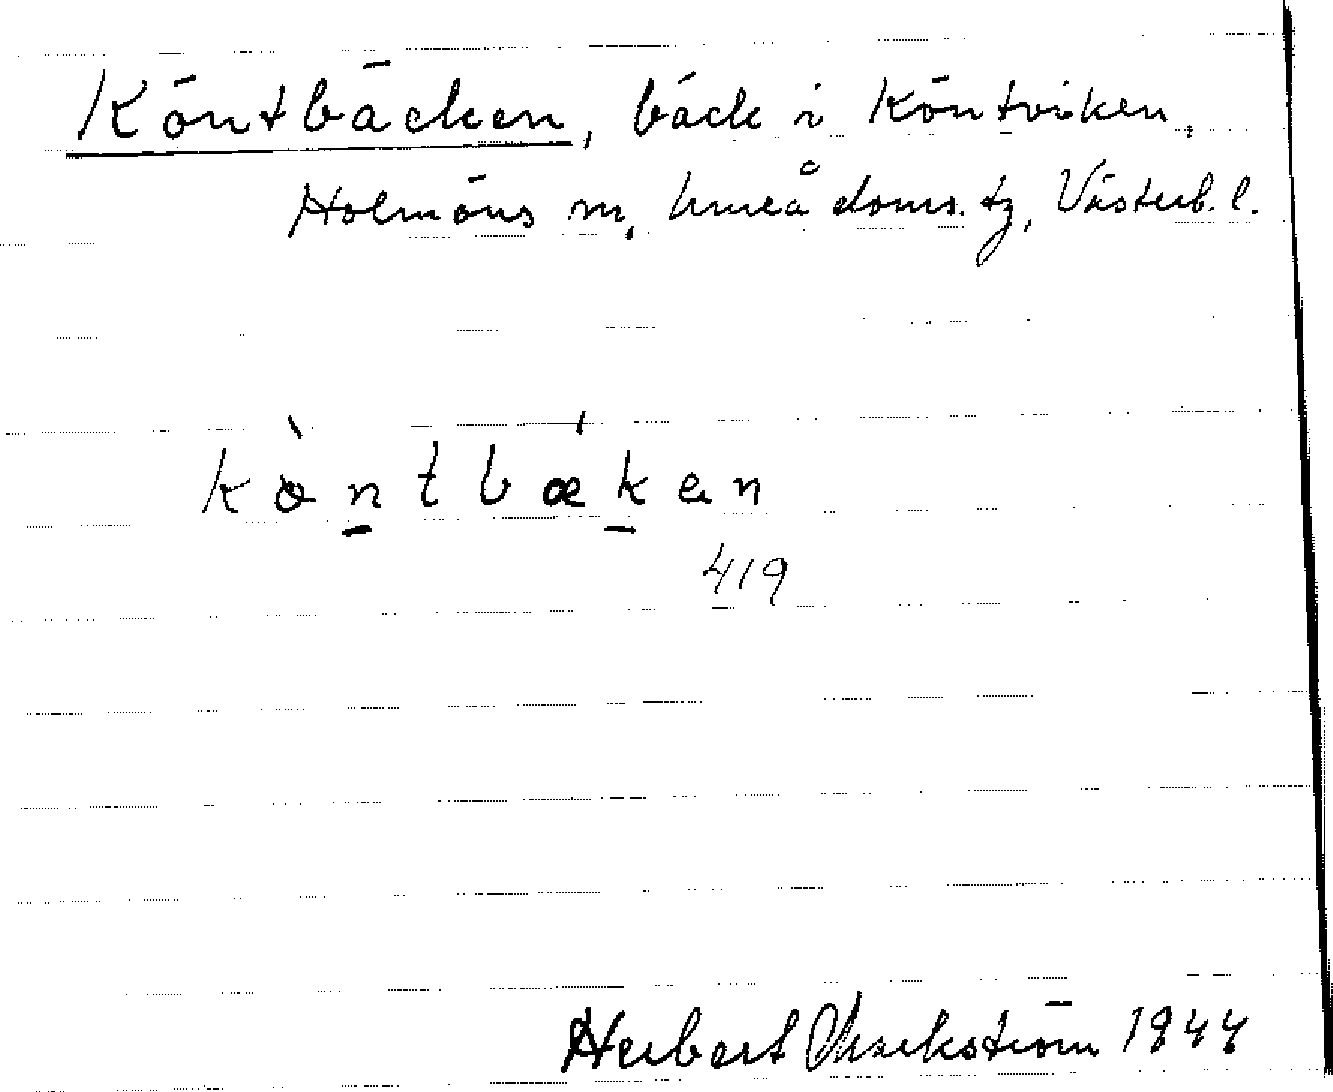 Köntbäcken, bäck i Köntviken,
Holmöns sn, Umeå doms. tg, Västerb. l.
kö̀ntbǽkən
419
Herbert 1944